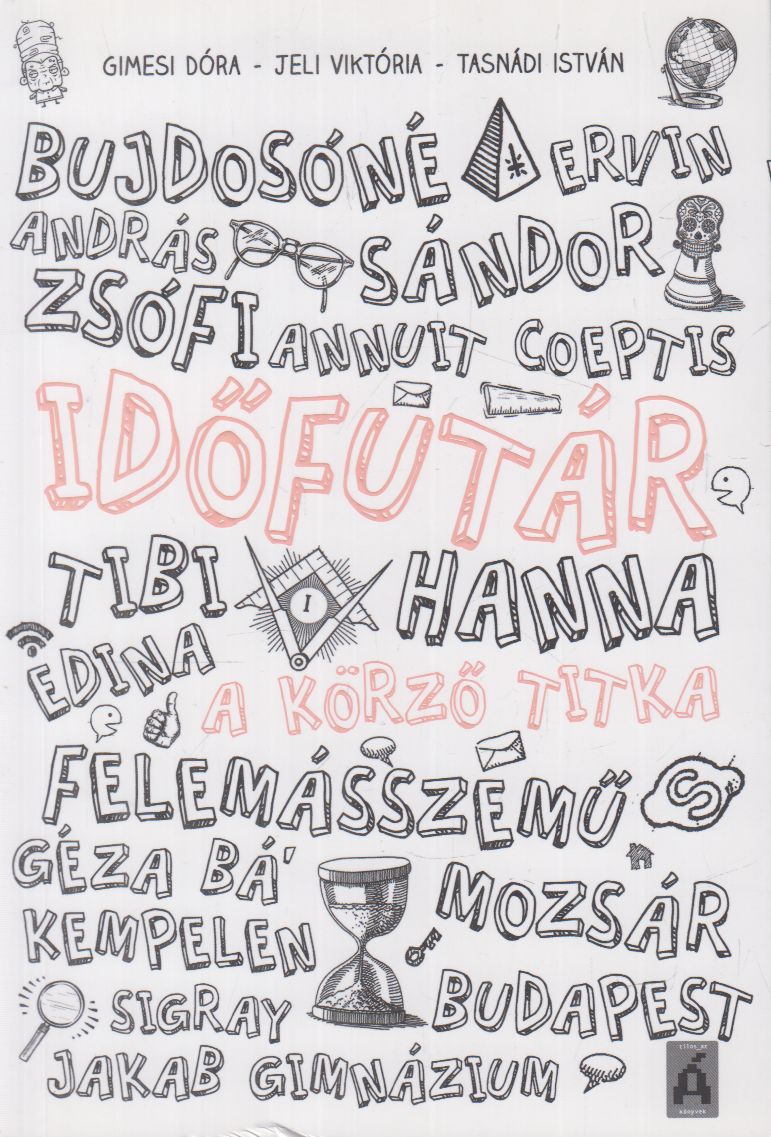 GIMESI DÓRA - JELI VIKTÓRIA - TASNÁDI ISTVÁN
BUJDOSÓNÉ ERVIN
ANDRÁS SÁNDOR
ZSÓFI ANNUIT COEPTIS
IDŐFUTÁR
TIBI I HANNA
EDINA
A KÖRZŐ TITKA
FELEMÁSSZEMŰ S
GÉZA BÁ'
MOZSÁR
KEMPELEN
BUDAPEST
SIGRAY
JAKAB GIMNÁZIUM
tilos_az
Á
könyvek